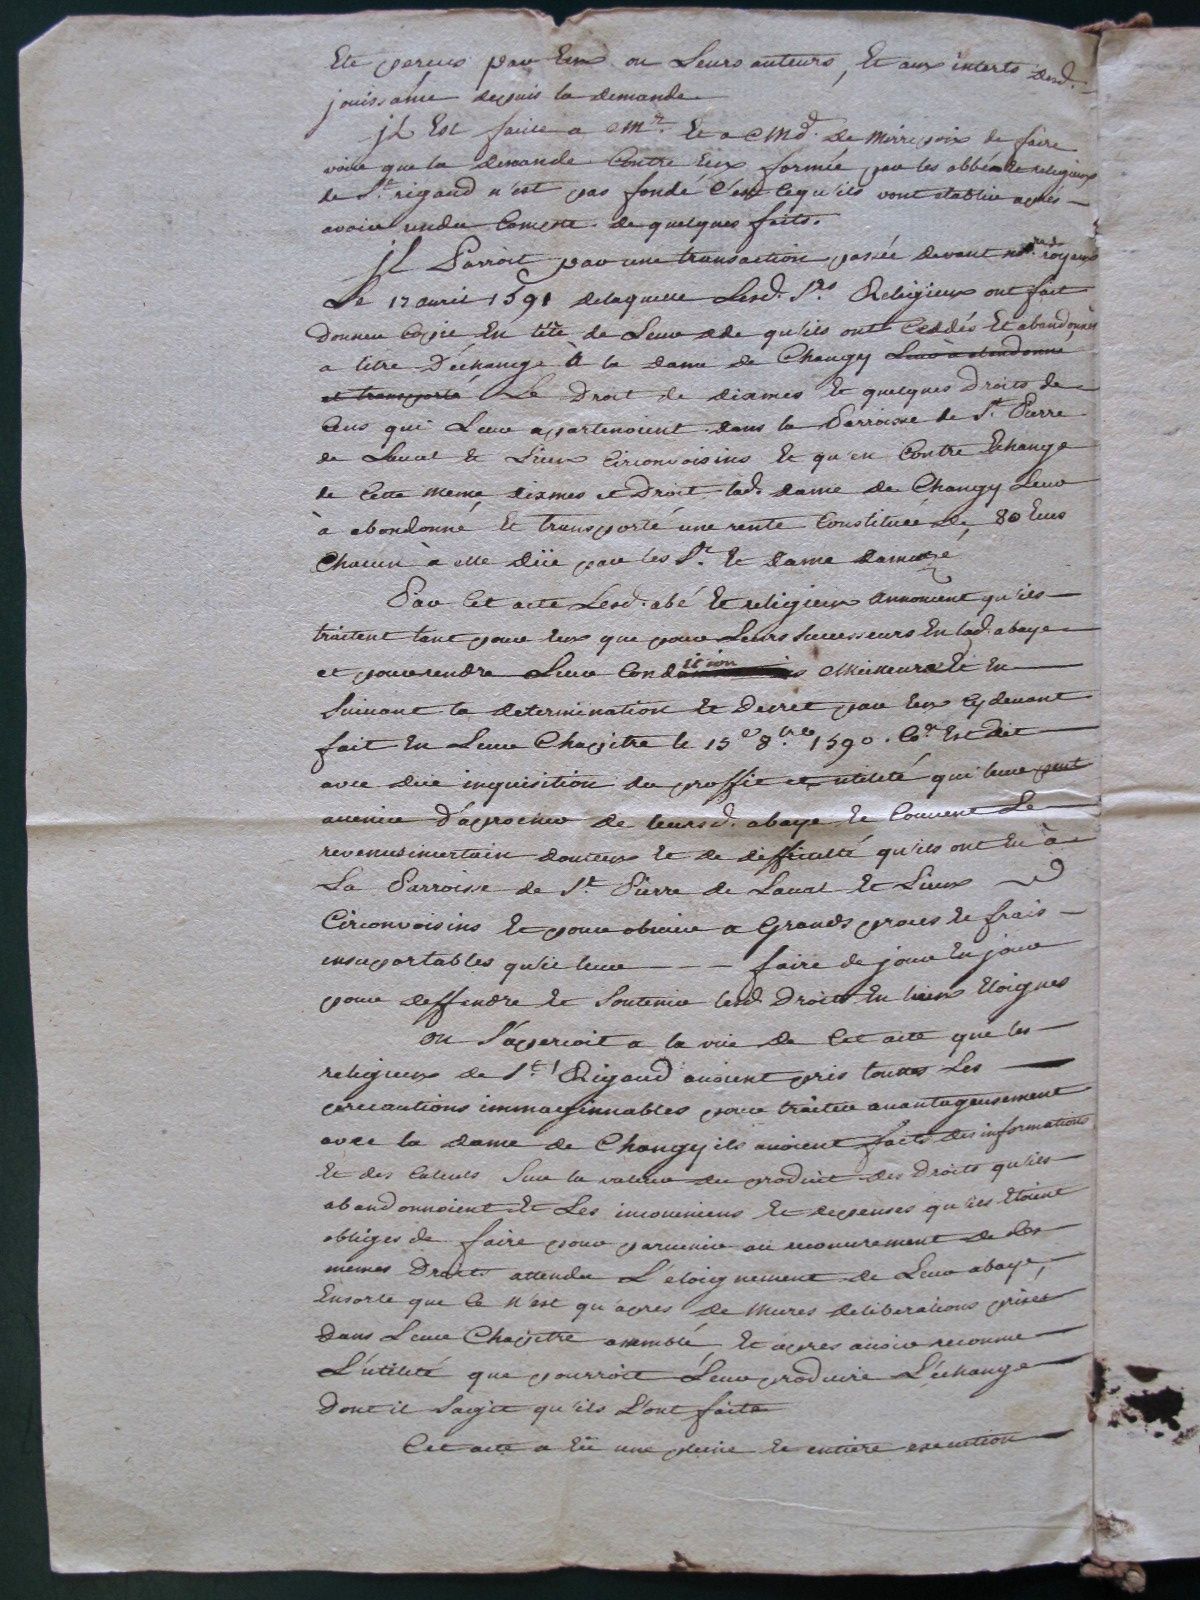 Ete percus par Eux ou Leurs auteurs, Et aux interts desd.
jouissance depuis la demande
jl Est facile a Mr. Et a Md. de mirrepoix de faire
voire que la demande Contre Eux formée par les abbé et religieux
de St. rigaud n'est pas fondé C'est cequ'ils vont etablir apres
avoir rendu Compte de quelques faits.
jl Parroit par une transaction passée devant nores. royaux
Le 17 avril 1591 delaquelle Lesd. Srs Religieux ont fait
donner Copie En tête de Leur dde qu'ils ont Ceddés Et abandonnés
a titre D'échange À la dame de Changy Leur à abandonné
et transporté Le Droit de dixmes Et quelques Droits de
Cens qui Leur apartenoient dans la Parroisse de St. Pierre
de Laval Et Lieux Circonvoisins Et qu'en Contre Echange
de Cette meme dixmes et Droit lad. dame de Changy Leur
à abondonné Et transporté une rente Constituée de 80 Ecus
Chacun à elle düe par les Sr. Et dame damuzé
Par Cet acte Lesd. abé Et religieux Annoncent qu'ils
traitent tant pour Eux que pour Leurs successeurs En lad. abaye
et pour rendre Leur Condition Meilleure Et En
Suivant la determination Et Decret par Eux Cy devant
fait En Leur Chapitre le 15e 8bre 1590. Cōe Est dit
avec düe inquisition du proffit et utilité qui leur peut
avenir D'aprocher de leursd. abaye Et Couvent Le
revenus incertain douteux Et de difficulté qu'ils ont Eu à
La Parroisse de St. Pierre de Laval Et Lieux
Circonvoisins Et pour obvier a Grands proces Et frais
insuportables qu'il leur - - - faire de jour En jour
pour deffendre Et Soutenir lesd. Droits En lieux Eloignés
On S'apercoit a la vüe de Cet acte que les
religieux de St. Rigaud avoient pris toutes Les
precautions immaginnables pour traiter avantageusement
avec la dame de Changy ils avoient faits des informations
Et des Calculs Sur la valeur du produit des Droits qu'ils
abandonnoient Et Les inconveniens Et depenses qu'ils Etoient
obligés de faire pour parvenir au recouvrement de Ces
memes Droits attendu L'eloignement de Leur abaye,
Ensorte que Ce N'est qu'apres de Mures deliberations prises
dans Leur Chapitre assemblé Et apres avoir reconnu
L'utilité que pourroit Leur produire L'échange
Dont il Sagit qu'ils L'ont faite
Cet acte a Eü une pleine Et entiere execution